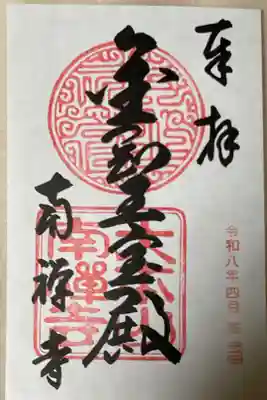 奉拝
令和八年四月
金剛王宝殿
南禅寺
大本山
南禅寺